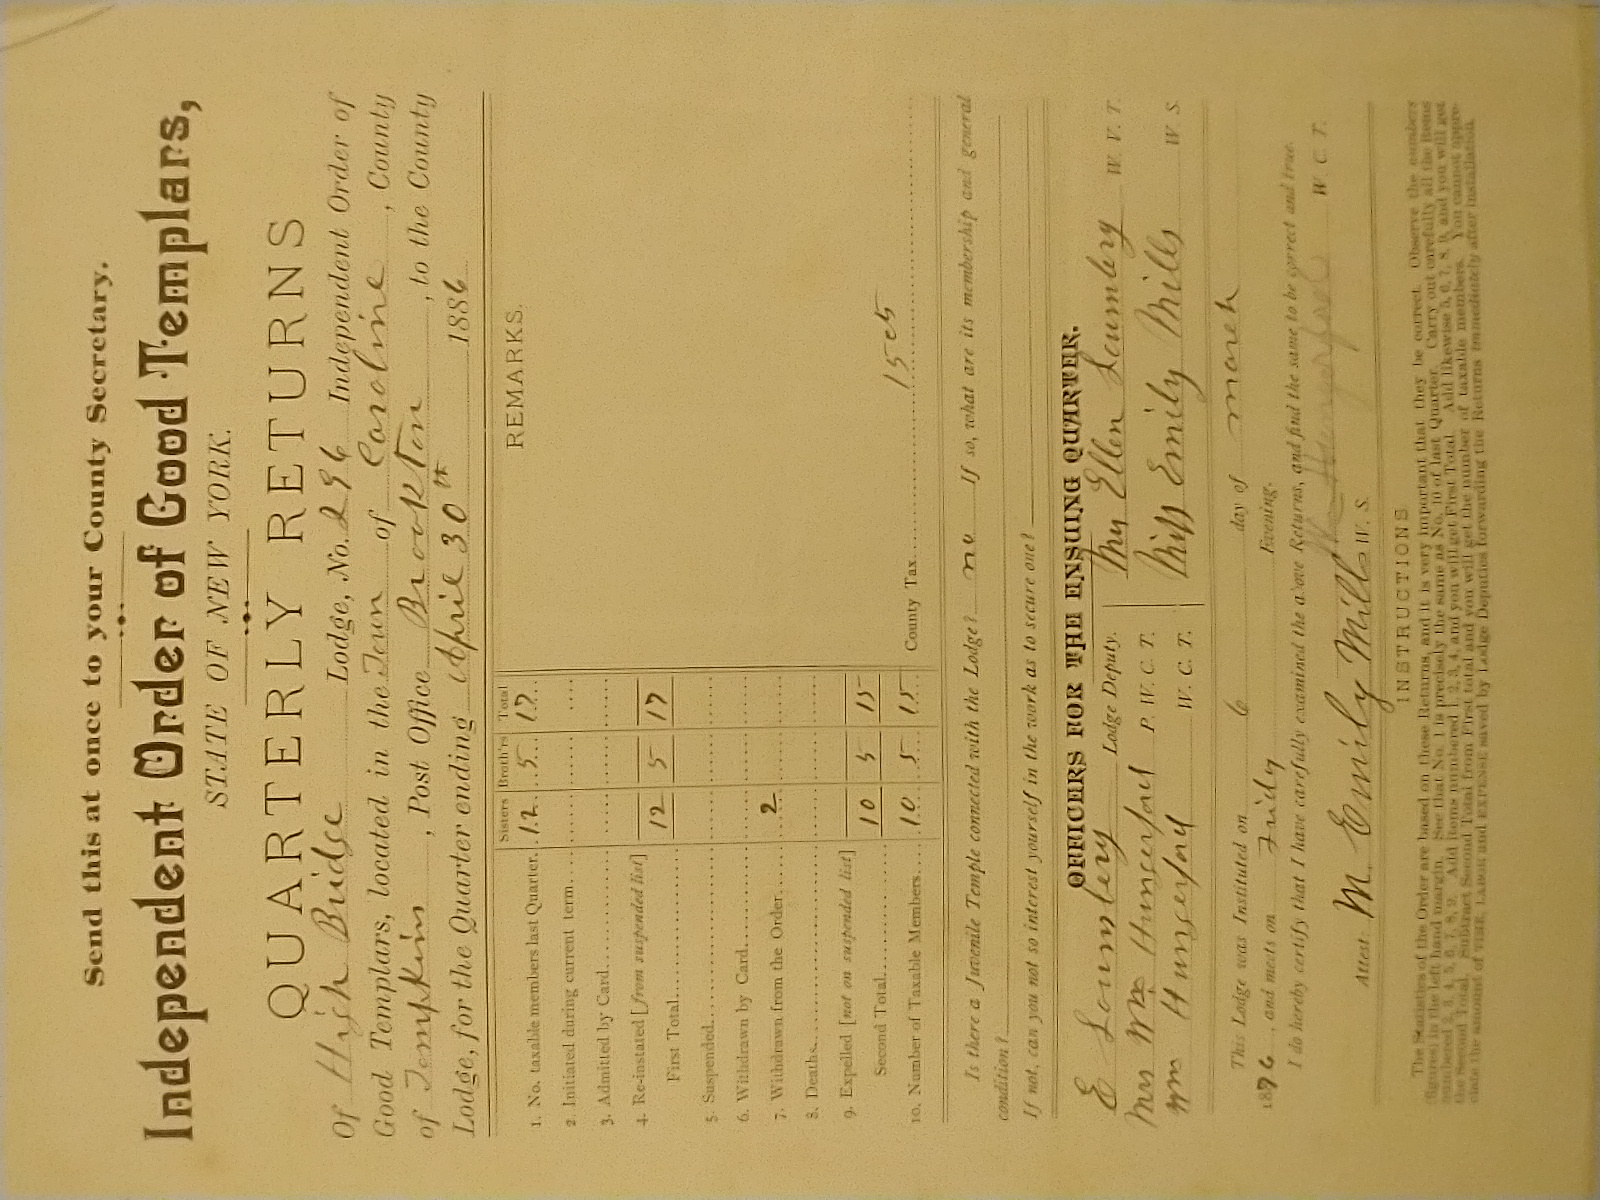 Send this at once to your County Secretary.
Independent Order of Good Templars,
STATE OF NEW YORK.
QUARTERLY RETURNS
Of High Bridge Lodge, No. 296 Independent Order of
Good Templars, located in the Town of Caroline, County
of Tompkins, Post Office Brookton, to the County
Lodge, for the Quarter ending April 30th 1886
Sisters Broth'rs Total
REMARKS.
1. No. taxable members last Quarter. 12 5 17
2. Initiated during current term
3. Admitted by Card
4. Re-instated [from suspended list]
First Total 12 5 17
5. Suspended
6. Withdrawn by Card
7. Withdrawn from the Order 2
8. Deaths
9. Expelled [not on suspended list]
Second Total 10 5 15
10. Number of Taxable Members 10 5 15 County Tax 15 cts
Is there a Juvenile Temple connected with the Lodge? no If so, what are its membership and general
condition?
If not, can you not so interest yourself in the work as to secure one?
OFFICERS FOR THE ENSUING QUARTER.
E Lounsbery Lodge Deputy. Mrs Ellen Lounsbery W. V. T.
Mrs Wm Hungerford P. W. C. T. Miss Emily Mills W. S.
Wm Hungerford W. C. T.
This Lodge was Instituted on 6 day of march
1876, and meets on Fridy Evening.
I do hereby certify that I have carefully examined the above Returns, and find the same to be correct and true.
Wm Hungerford W. C. T.
Attest: M. Emily Mills W. S.
INSTRUCTIONS
The Statistics of the Order are based on these Returns, and it is very important that they be correct. Observe the numbers
(figures) in the left hand margin. See that No. 1 is precisely the same as No. 10 of last Quarter. Carry out carefully all the items
numbered 2, 3, 4, 5, 6, 7, 8, 9. Add items numbered 1, 2, 3, 4, and you will get First Total. Add likewise 5, 6, 7, 8, 9, and you will get
the Second Total. Subtract Second Total from First total and you will get the number of taxable members. You cannot appre-
ciate the amount of TIME, LABOR and EXPENSE saved by Lodge Deputies forwarding the Returns immediately after installation.